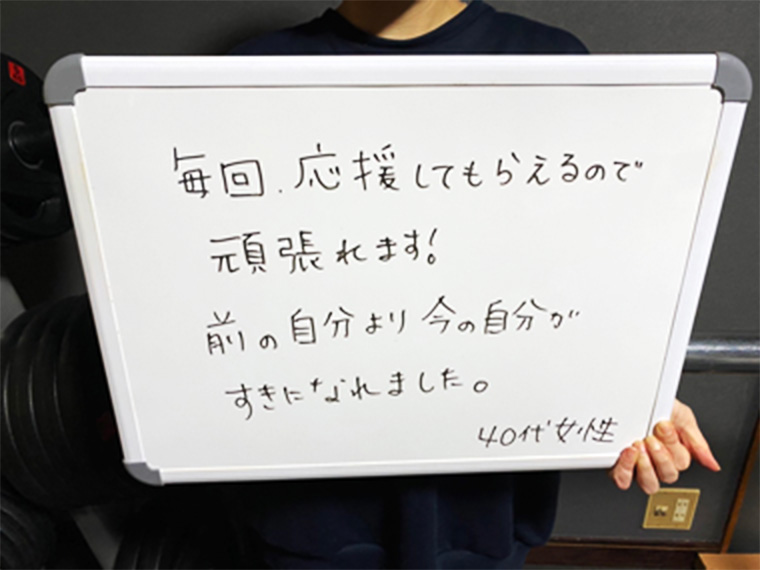 毎回、応援してもらえるので
頑張れます!
前の自分より今の自分が
すきになれました。
40代女性